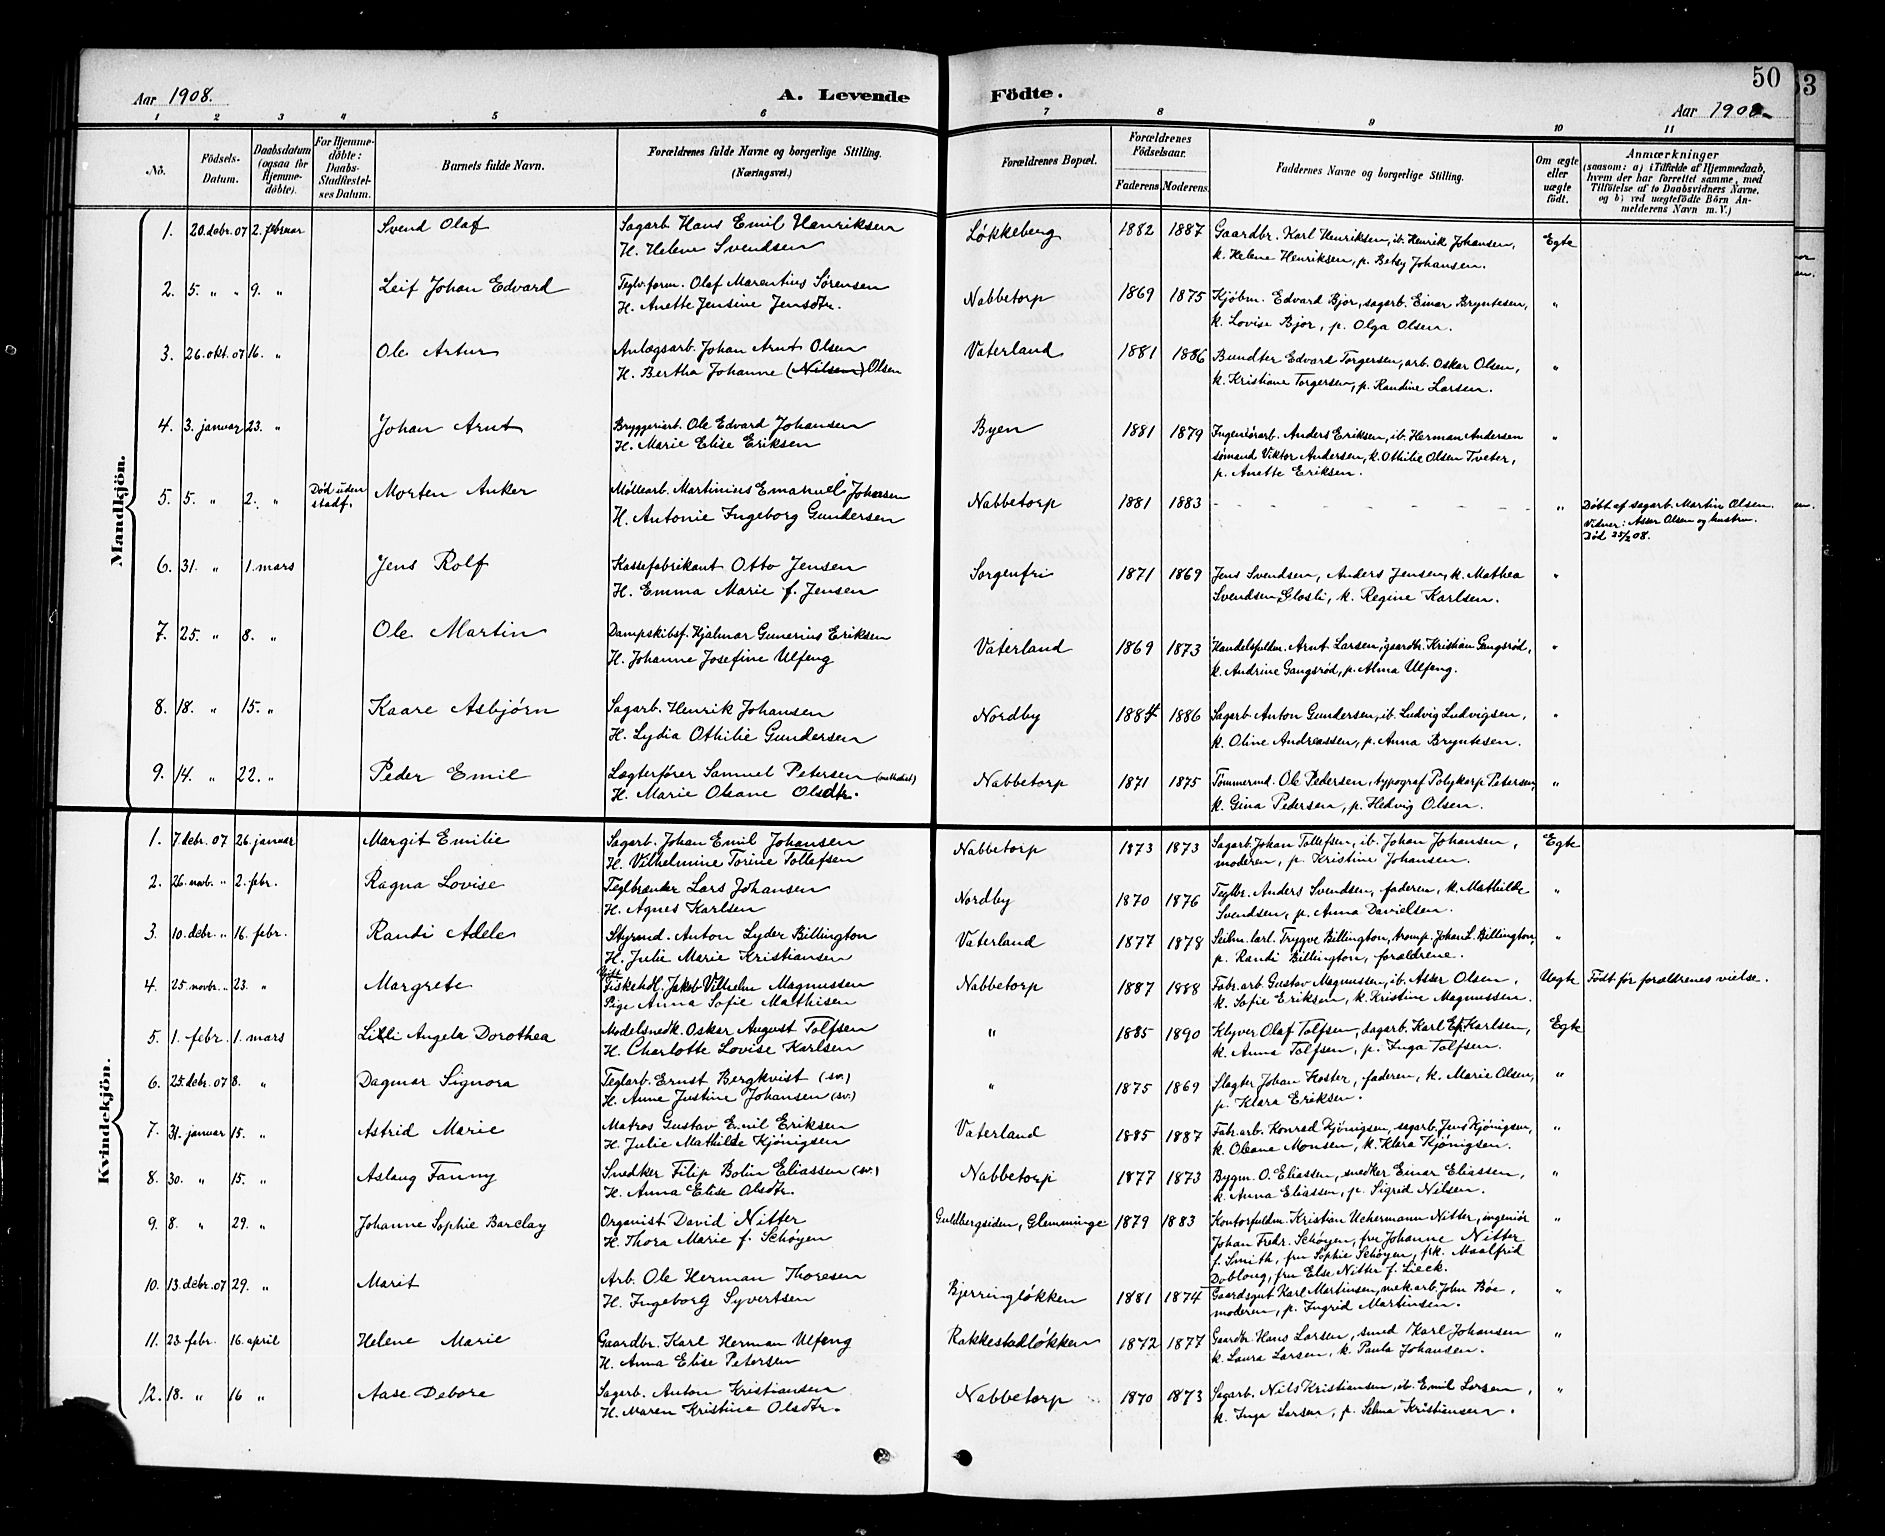 50
53
Aar 1908.
A. Levende
Födte.
Aar 1908.
1 2 3 4 5 6 7 8 9 10 11
No.
Födsels-Datum.
Daabsdatum (ogsaa för Hjemme-döbte).
For Hjemme-döbte: Daabs-Stadfæstelses Datum.
Barnets fulde Navn.
Forældrenes fulde Navne og borgerlige Stilling. (Næringsvei.)
Forældrenes Bopæl.
Forældrenes Födselsaar.
Faderens Moderens.
Faddernes Navne og borgerlige Stilling.
Om ægte eller uægte født.
Anmærkninger
(saasom: a) i Tilfælde af Hjemmedaab, hvem der har forrettet samme, med Tilföielse af to Daabsvidners Navne, og b) ved uægtefödte Börn Anmelderens Navn m. V.)
Mandkjön.
1. 20. debr. 07 2. februar Svend Olaf Sagarb. Hans Emil Henriksen Løkkeberg 1882 1887 Gaardbr. Karl Henriksen, ib. Henrik Johansen, Egte
H. Helene Svendsen k. Helene Henriksen, p. Betsy Johansen.
2. 5. " " 9. " Leif Johan Edvard Teglv.form. Olaf Marentius Sørensen Nabbetorp 1869 1875 Kjøbm. Edvard Bjor, sagarb. Einar Bryntesen, "
H. Anette Jensine Jensdtr. k. Lovise Bjor, p. Olga Olsen.
3. 26. okt. 07 16. " Ole Artur Anlægsarb. Johan Arnt Olsen Vaterland 1881 1886 Bundter Edvard Torgersen, arb. Oskar Olsen, "
H. Bertha Johanne (Nilsen) Olsen k. Kristiane Torgersen, p. Randine Larsen.
4. 3. januar 23. " Johan Arnt Bryggeriarb. Ole Edvard Johansen Byen 1881 1879 Ingeniørarb. Anders Eriksen, ib. Herman Andersen "
H. Marie Elise Eriksen sømand Viktor Andersen, k. Othilie Olsen Tveter,
p. Anette Eriksen.
5. 5. " 2. " Død uden stadf. Morten Anker Møllearb. Martinius Emanuel Johansen Nabbetorp 1881 1883 - - - - - - - " Døbt af sagarb. Martin Olsen.
H. Antonie Ingeborg Gundersen Vidner: Asser Olsen og hustru.
Død 25/2 08.
6. 31. " 1. mars Jens Rolf Kassefabrikant Otto Jensen Sorgenfri 1871 1869 Jens Svendsen, Anders Jensen, k. Mathea "
H. Emma Marie f. Jensen Svendsen, Glosli, k. Regine Karlsen.
7. 25. " 8. " Ole Martin Dampskibsf. Hjalmar Gunerius Eriksen Vaterland 1869 1873 Handelsfuldm. Arnt Larsen, gaardbr. Kristian Gangsrød, "
H. Johanne Josefine Ulfeng k. Andrine Gangsrød, p. Alma Ulfeng.
8. 18. " 15. " Kaare Asbjørn Sagarb. Henrik Johansen Nordby 1884 1886 Sagarb. Anton Gundersen, ib. Ludvig Ludvigsen, "
H. Lydia Othilie Gundersen k. Oline Andreassen, p. Anna Bryntesen.
9. 14. " 22. " Peder Emil Lægterfører Samuel Petersen (methodist) Nabbetorp 1871 1875 Tømmermd. Ole Pedersen, typograf Polykarp Petersen, "
H. Marie Oleane Olsdtr. k. Gina Pedersen, p. Hedvig Olsen.
Kvindekjön.
1. 7. debr. 07 26. januar Margit Emilie Sagarb. Johan Emil Johansen Nabbetorp 1873 1873 Sagarb. Johan Tollefsen, ib. Johan Johansen, Egte
H. Vilhelmine Torine Tollefsen moderen, p. Kristine Johansen.
2. 26. novb. " 2. febr. Ragna Lovise Teglbrænder Lars Johansen Nordby 1870 1876 Teglbr. Anders Svendsen, faderen, k. Mathilde "
H. Agnes Karlsen Svendsen, p. Anna Davielsen.
3. 10. debr. " 16. febr. Randi Adele Styrmd. Anton Lyder Billington Vaterland 1877 1878 Seilm.lærl. Trygve Billington, tromp. Johan L. Billington, "
H. Julie Marie Kristiansen p. Randi Billington, forældrene.
4. 25. novbr. " 23. " Margrete Fiskehdl. Jakob Vilhelm Magnussen Nabbetorp 1887 1888 Fabr.arb. Gustav Magnussen, ib. Asser Olsen, Uegte Født før forældrenes vielse.
Pige Anna Sofie Mathisen k. Sofie Eriksen, k. Kristine Magnussen.
5. 1. febr. 1. mars Lilli Angela Dorothea Modelsnedk. Oskar August Tolfsen " 1885 1890 Klyver Olaf Tolfsen, sagarb. Karl Ef. Karlsen, Egte
H. Charlotte Lovise Karlsen k. Anna Tolfsen, p. Inga Tolfsen.
6. 25. debr. 07 8. " Dagmar Signora Teglarb. Ernst Bergkvist (sv.) " 1875 1869 Slagter Johan Koster, faderen, k. Marie Olsen, "
H. Anne Justine Johansen (sv.) p. Klara Eriksen.
7. 31. januar 15. " Astrid Marie Matros Gustav Emil Eriksen Vaterland 1885 1887 Fabr.arb. Konrad Kjønigsen, sagarb. Jens Kjønigsen, "
H. Julie Mathilde Kjønigsen k. Oleane Monsen, k. Klara Kjønigsen.
8. 30. " 15. " Aslaug Fanny Snedker Filip Bolin Eliassen (sv.) Nabbetorp 1877 1873 Bygm. O. Eliassen, snedker Einar Eliassen, "
H. Anna Elise Olsdtr. k. Anna Eliassen, p. Sigrid Nilsen.
9. 8. " 29. " Johanne Sophie Barclay Organist David Nitter Guldbergsiden, Glemminge 1879 1883 Kontorfuldm. Kristian Uchermann Nitter, ingeniør "
H. Thora Marie f. Schøyen Johan Fredr. Schøyen, fru Johanne Nitter
f. Smith, fru Sophie Schøyen, frk. Maalfrid
Doblong, fru Else Nitter f. Lieck.
10. 13. debr. 07 29. " Marit Arb. Ole Herman Thoresen Bjerringløkken 1881 1874 Gaardsgut Karl Martinsen, mek.arb. John Bøe, "
H. Ingeborg Syvertsen moderen, p. Ingrid Martinsen.
11. 23. febr. 16. april Helene Marie Gaardbr. Karl Herman Ulfeng Rakkestadløkken 1872 1877 Gaardbr. Hans Larsen, smed Karl Johansen "
H. Anna Elise Petersen k. Laura Larsen, k. Paula Johansen.
12. 18. " 16 " Aase Debora Sagarb. Anton Kristiansen Nabbetorp 1870 1873 Sagarb. Nils Kristiansen, ib. Emil Larsen, "
H. Maren Kristine Olsdtr. k. Inga Larsen, p. Selma Kristiansen.